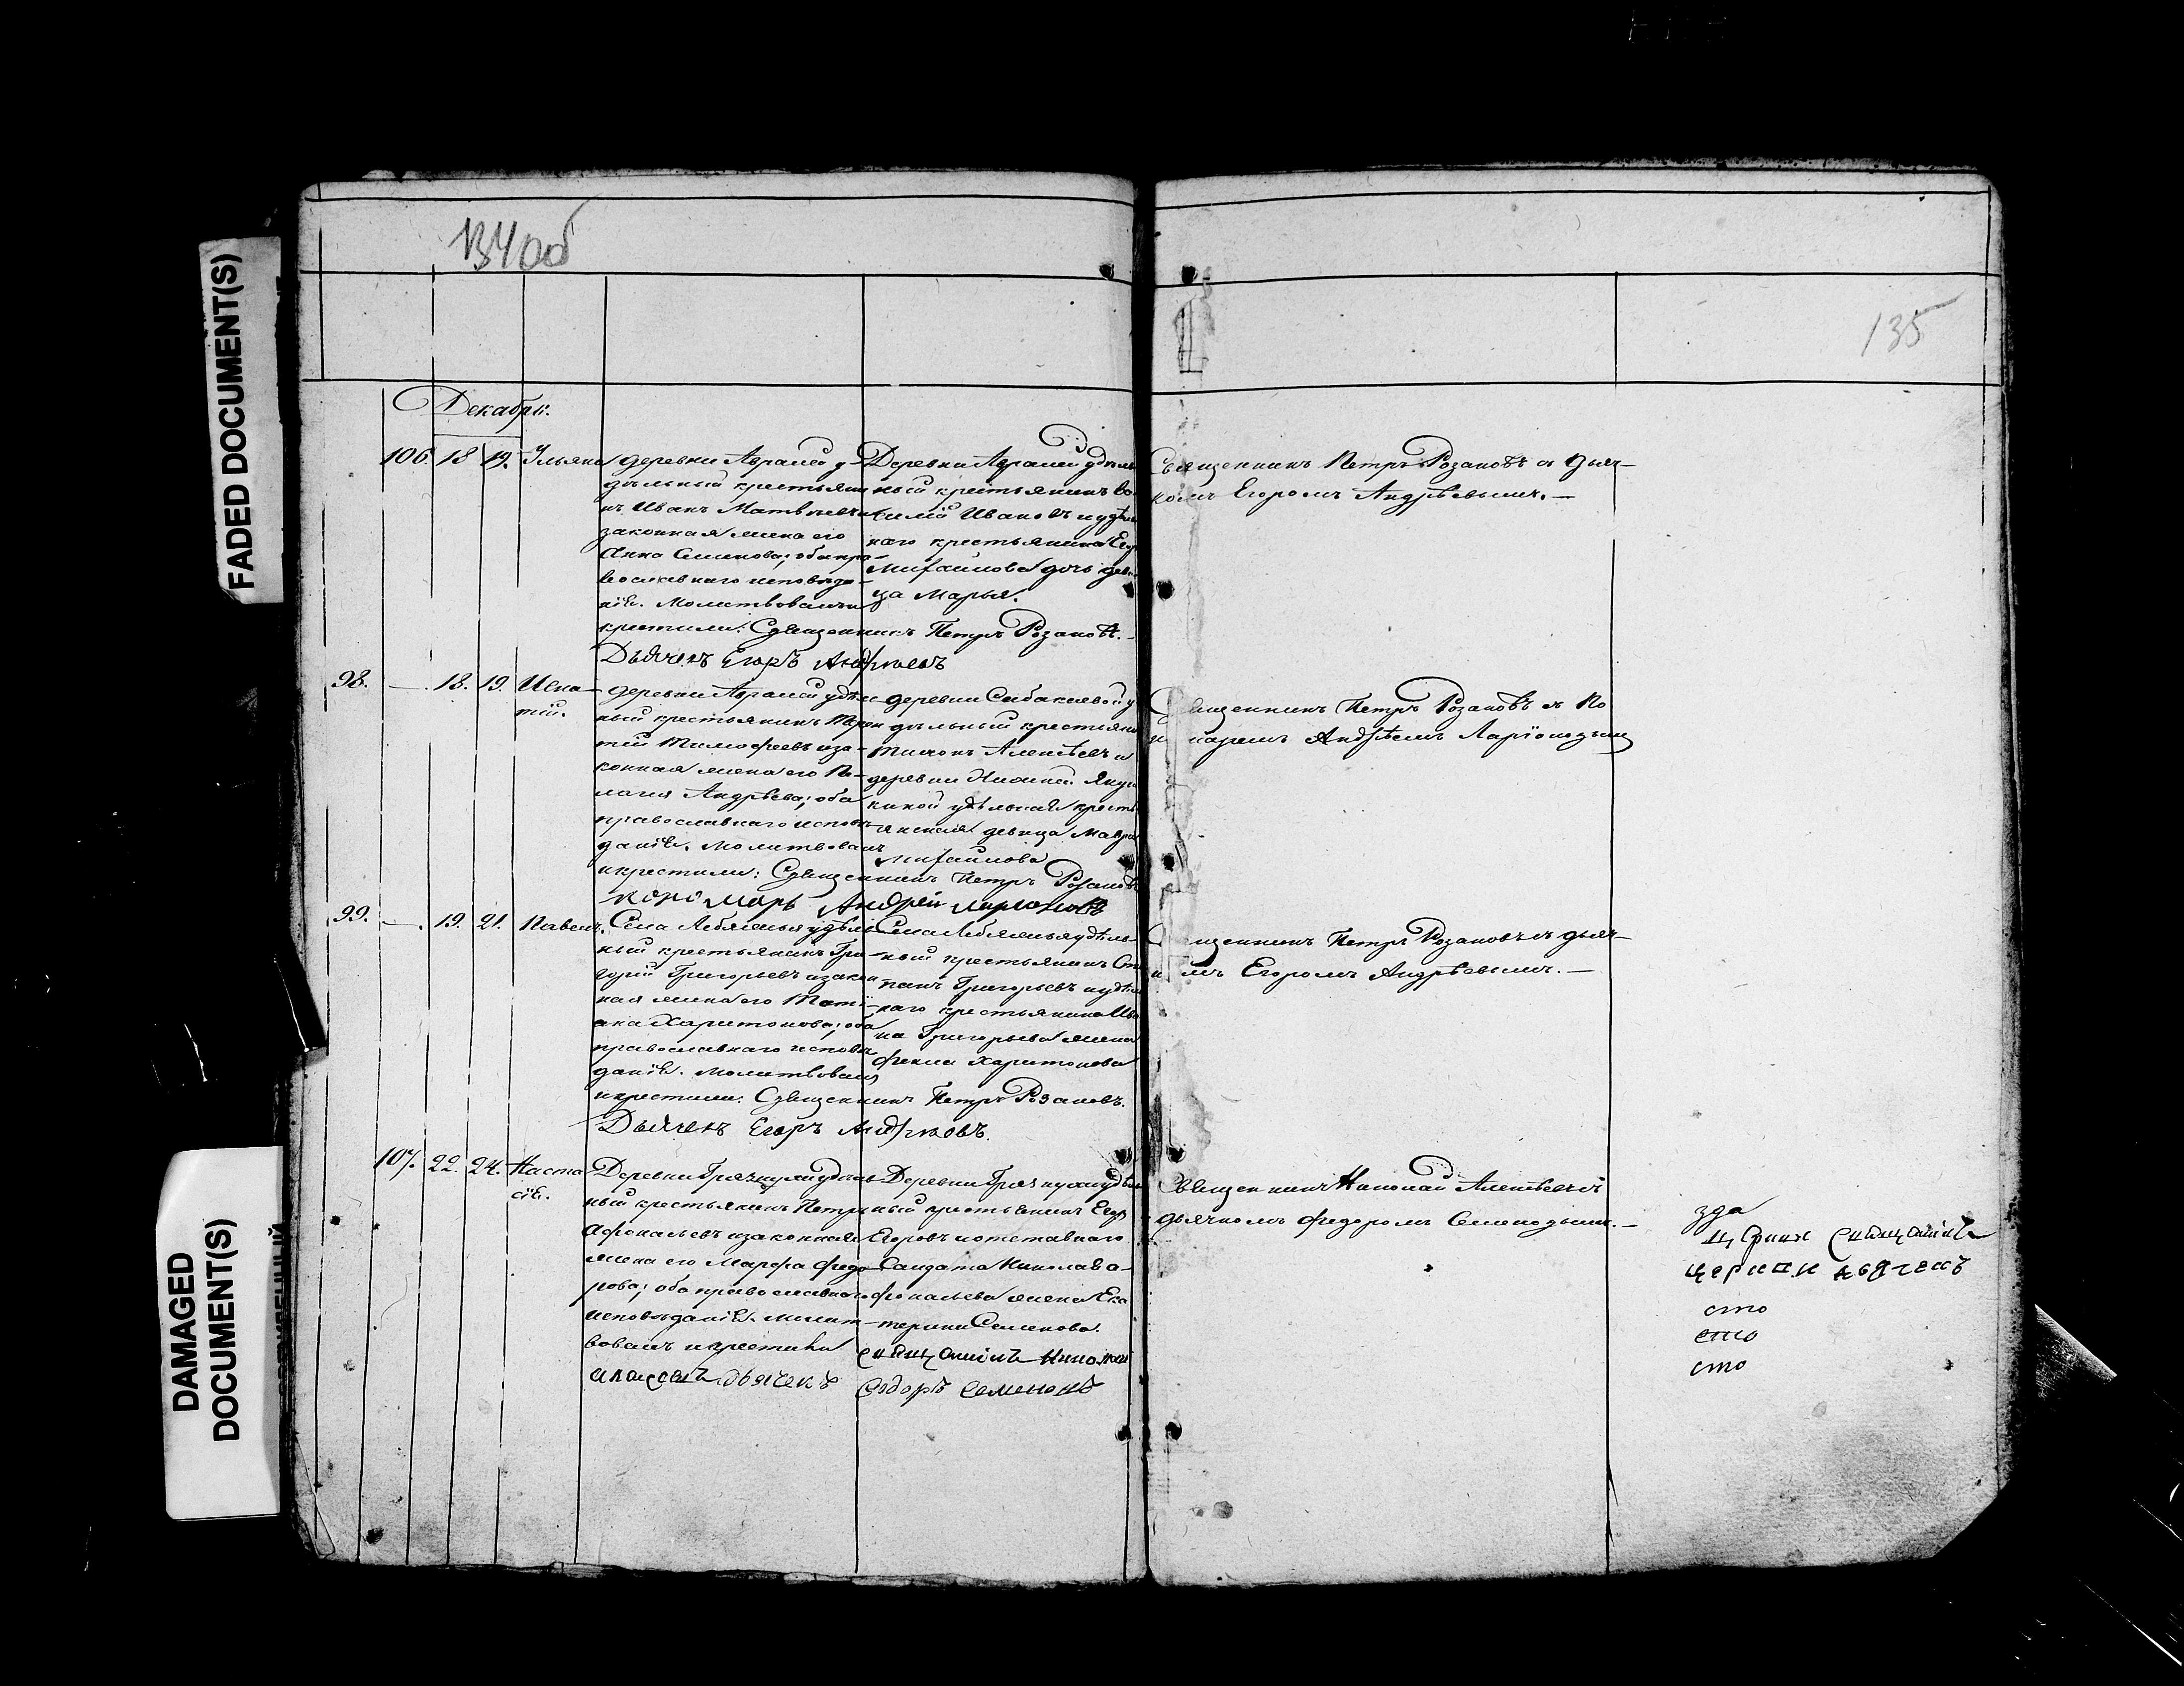 FADED DOCUMENT(S)
DAMAGED
DOCUMENT(S)
134 об
135
Декабрь.
106. 18 19. Ульяна
деревни Аврамей у-
дѣльный крестьяни
нъ Иванъ Матвѣевъ и
законная жена его
Анна Семенова; оба пра-
вославнаго исповѣда-
нія. Молитвовалъ и
крестили: Священникъ Петръ Розановъ.
Дьячекъ Егоръ Андреевъ
Деревни Аврамей удѣль
ный крестьянинъ Ва
силій Ивановъ и удѣль
наго крестьянина Его
Михайлова дочь деви-
ца Марья.
Священникъ Петръ Розановъ съ дьяч-
комъ Егоромъ Андрѣевымъ.—
98. —. 18. 19. Игна-
тій.
деревни Аврамей удѣл
ный крестьянинъ
тій Тимофеевъ и за-
конная жена его Пе-
лагия Андрѣева; оба
православнаго исповѣ-
данія. Молитвовалъ
и крестили: Священникъ Петръ Розановъ
пономарь Андрей Ларионовъ
деревни у
дѣльный крестьянин
Тихонъ Алексѣевъ и
деревни Нижней Яку
киной удѣльная кресть
янская девица Мавра
Михайлова
Священникъ Петръ Розановъ съ По
номаремъ Андрѣемъ Ларіоновымъ
99. —. 19. 21. Павелъ.
Села Лебяжья удѣль
ный крестьянинъ Гри-
горій Григорьевъ и закон
ная жена его Татi-
ана Харитонова; оба
православнаго исповѣ
данія. Молитвовалъ
и крестили: Священникъ Петръ Розановъ.
Дьячекъ Егоръ Андреевъ.
Села Лебяжья удѣль-
ный крестьянинъ Сте
панъ Григорьевъ и удѣль
наго крестьянина Ива
на Григорьева жена
Фекла Харитонова
Священникъ Петръ Розановъ съ дьяч-
комъ Егоромъ Андрѣевымъ.—
107. 22. 24. Наста
сія.
Деревни Грязнухи удѣль
ный крестьянинъ Петръ
Афонасьевъ и законная
жена его Марфа Федо
рова; оба православнаго
исповѣданія. Молит-
вовалъ и крестили
Священникъ Николай
Алексеевъ дьячекъ Федоръ Семеновъ
Деревни Грязнухи удѣль
ный крестьянинъ Егор
Егоровъ и отставнаго
Салдата Николая А-
фонасьева жена Ека
терина Семенова.
Священникъ Николай Алексѣевъ съ
дьячкомъ Федоромъ Семеновымъ.—
зда
церкви
церкви дьячекъ
сто
сто
сто